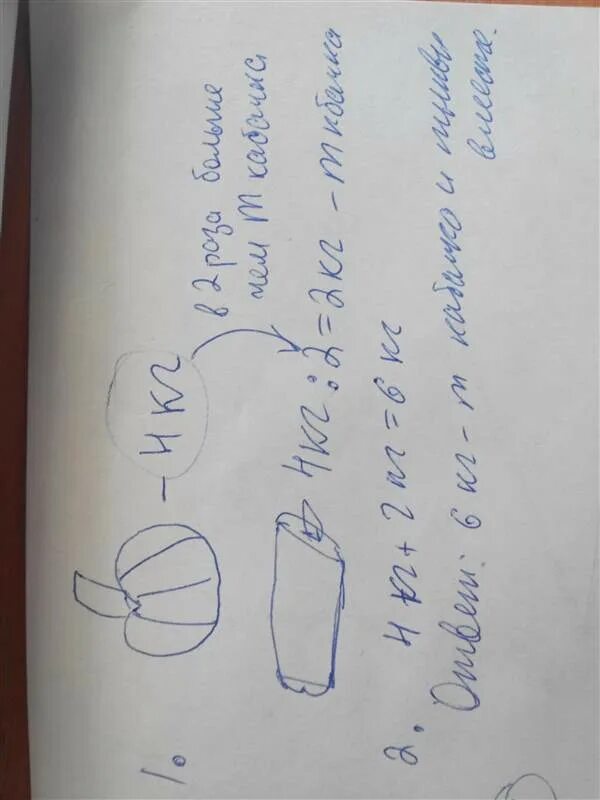 1.
– 4кг
в 2 раза больше
чем m кабачка
4кг : 2 = 2кг – m кбачка
2. 4 кг + 2 кг = 6 кг
Ответ: 6 кг – m кабачка и тыквы
вместе.